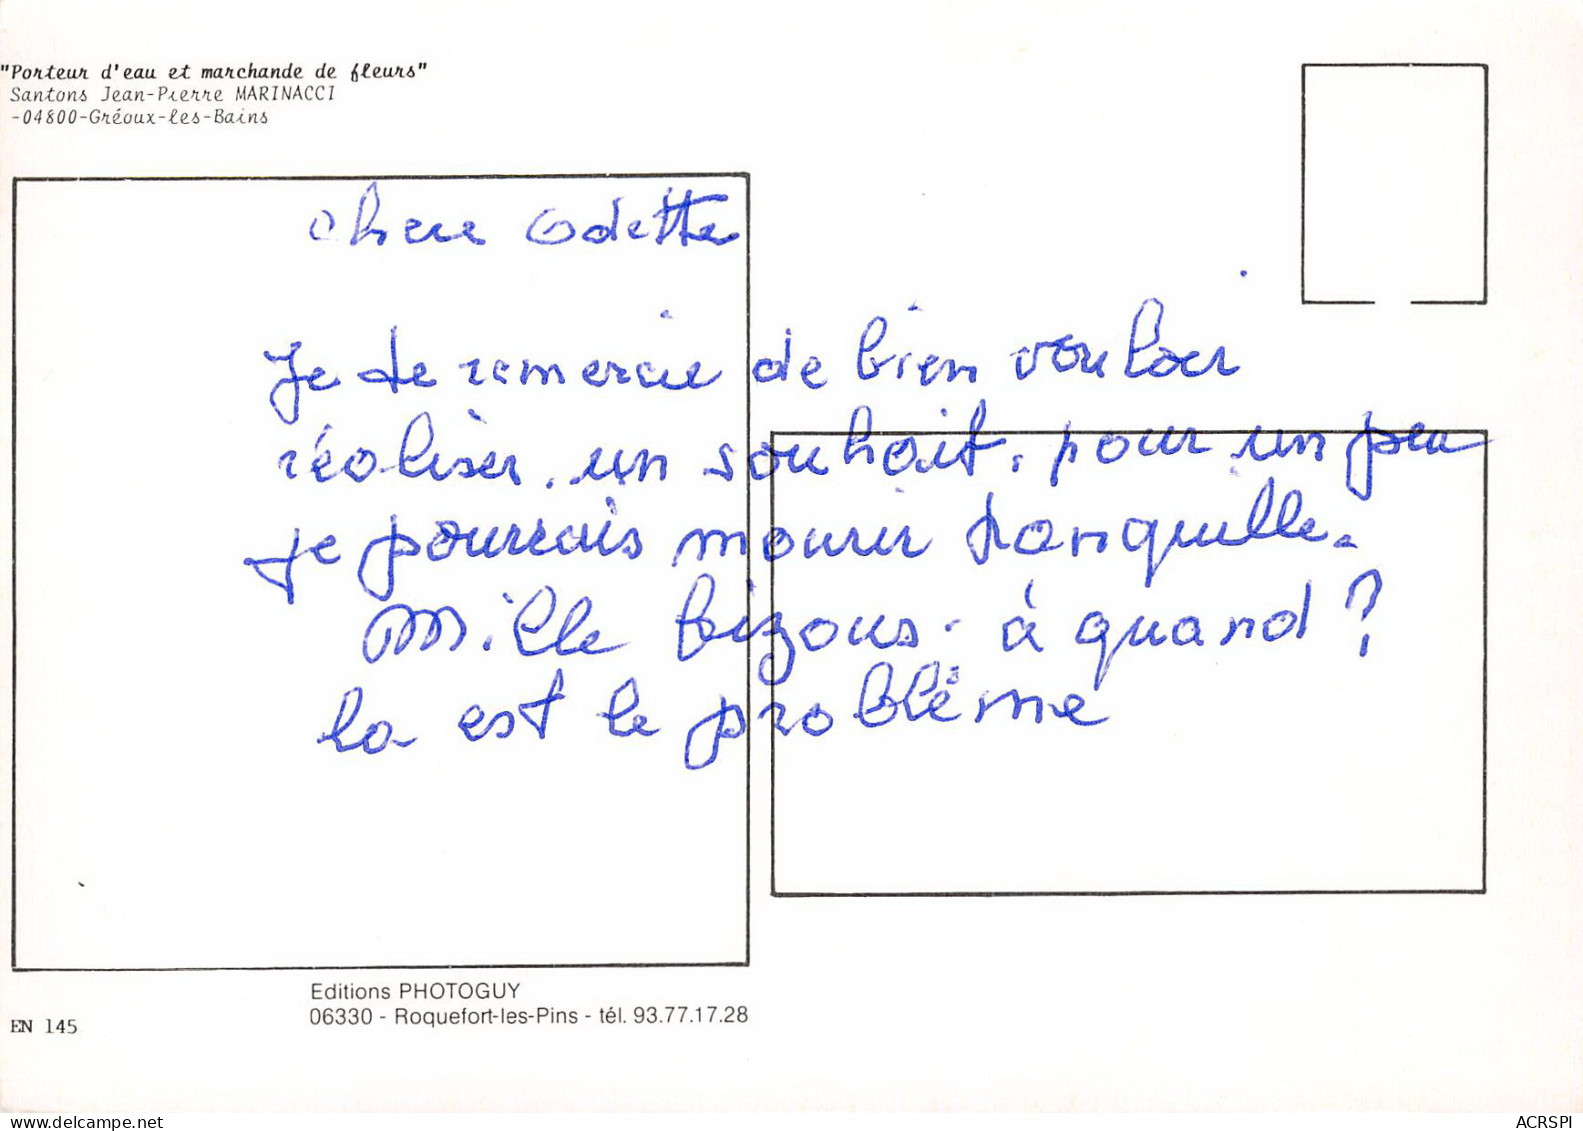 "Porteur d'eau et marchande de fleurs"
Santons Jean-Pierre MARINACCI
-04800-Gréoux-les-Bains
chere Odette
Je te remercie de bien vouloir
réaliser. un souhait. pour un peu
je pourrais mourir tranquille.
Mille bizous. à quand ?
la est le problème
Editions PHOTOGUY
06330 - Roquefort-les-Pins - tél. 93.77.17.28
EN 145
delcampe.net
ACRSPI